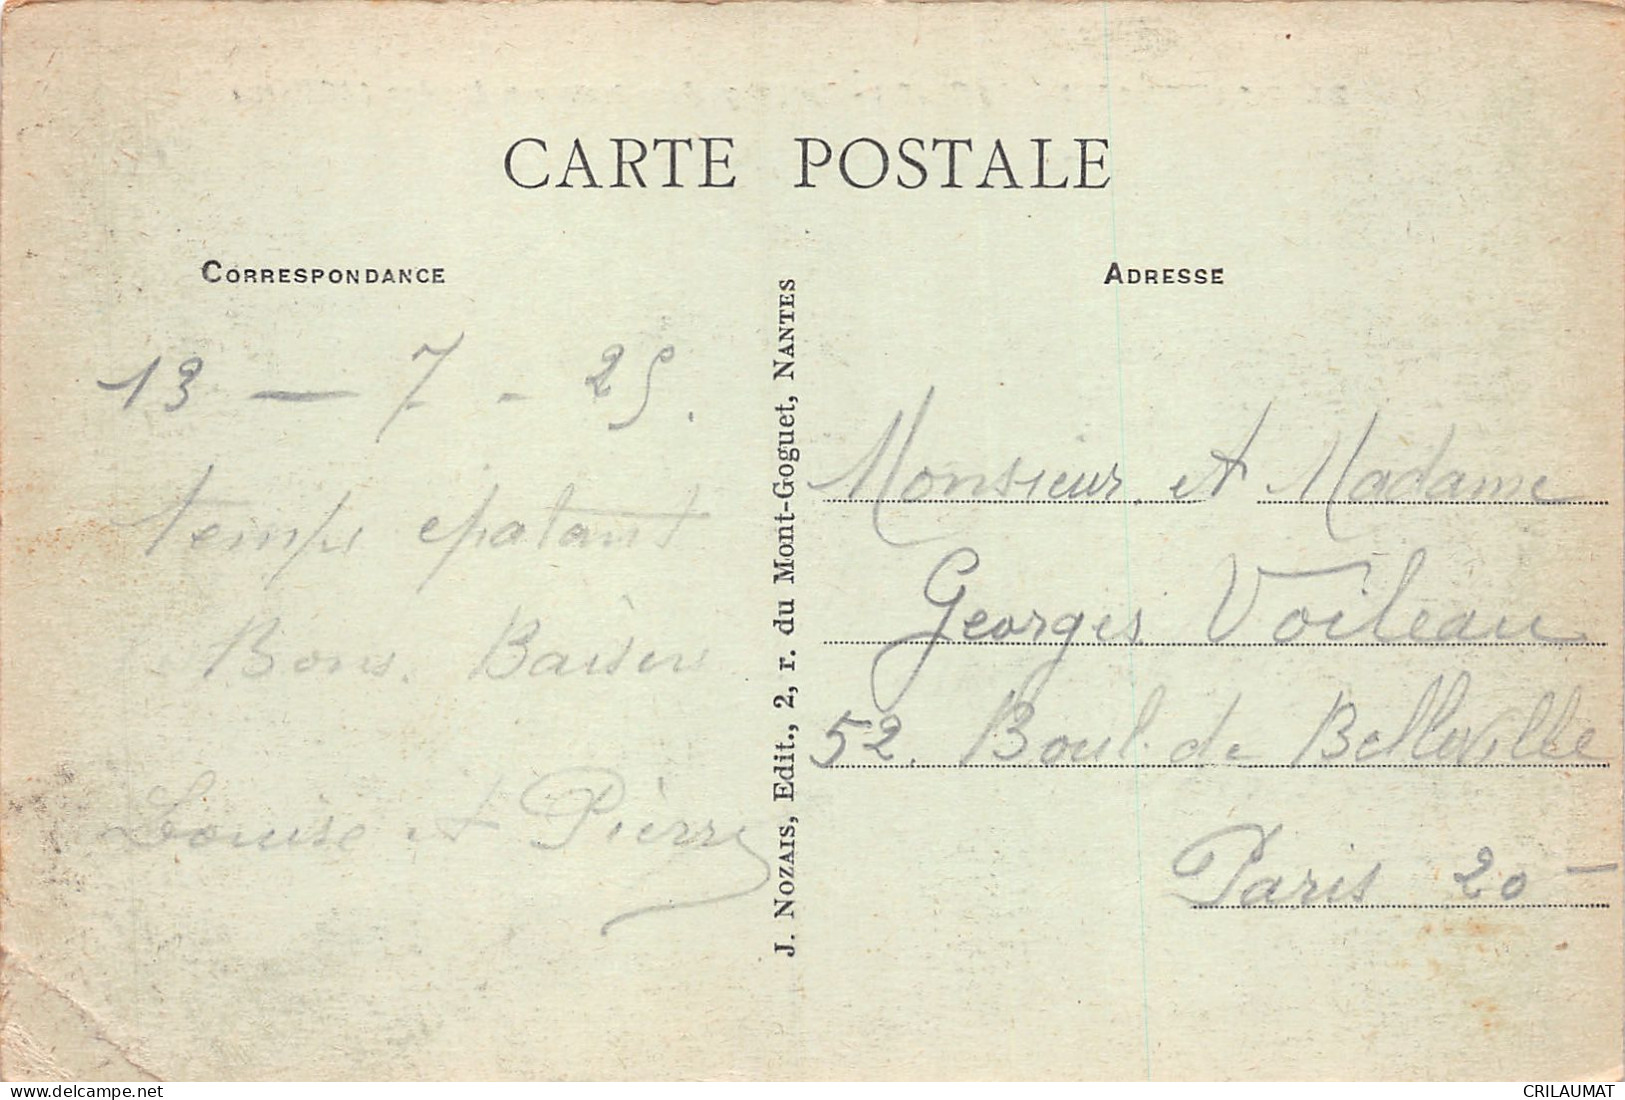 CARTE POSTALE
CORRESPONDANCE
13 — 7 - 25.
temps epatant
Bons. Baisers
Louise et Pierre
J. NOZAIS, Edit., 2, r. du Mont-Goguet, NANTES
ADRESSE
Monsieur et Madame
Georges Voileau
52. Boul. de Belleville
Paris 20 -
www.delcampe.net
CRILAUMAT